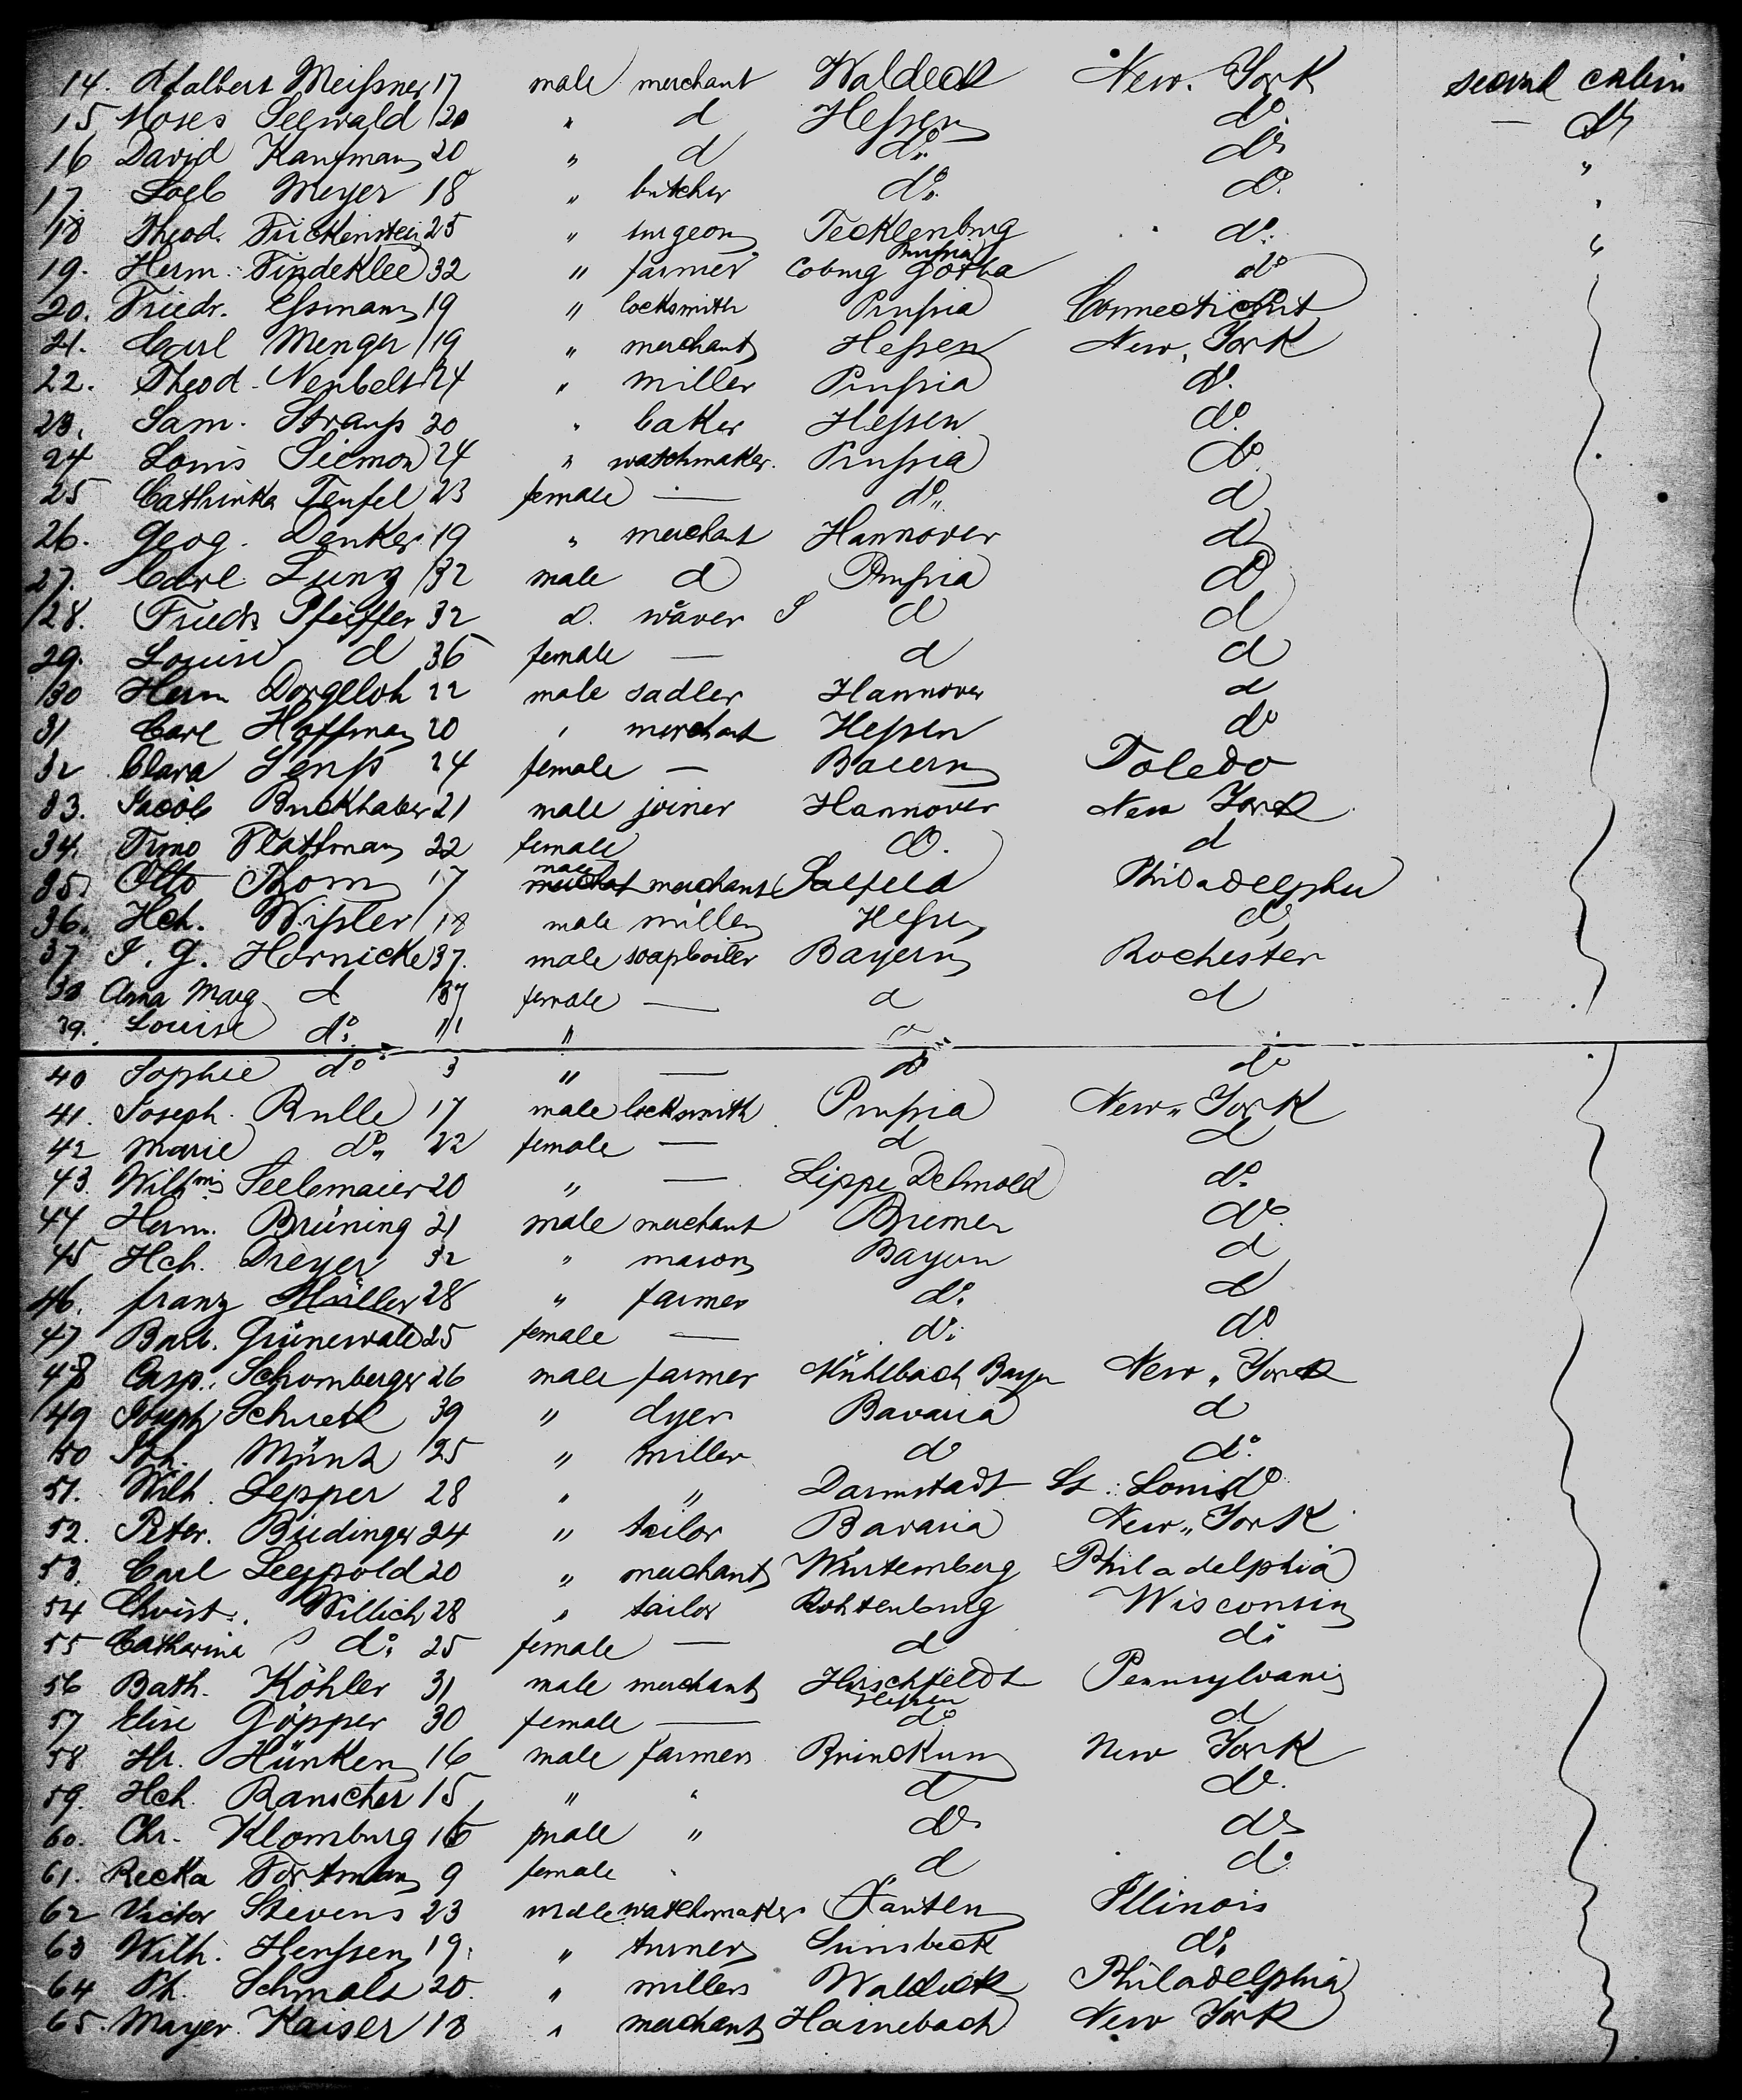 14. Adalbert Meißner 17 male merchant Waldeck New York second cabin
15 Moses Seewald 20 " d Hessen do do
16 David Kaufmann 20 " d do do "
17. Loeb Meyer 18 " butcher do do "
18 Theod. 25 " surgeon Tecklenburg do "
Prussia
19. Herm. Findeklee 32 " farmer Coburg Gotha do
20. Friedr. Essmann 19 " locksmith Prussia Connecticut
21. Carl Menger 19 " merchant Hessen New York
22. Theod. 24 " miller Prussia do
23. Sam. Strauß 20 " baker Hessen do
24 Louis Siemon 24 " watchmaker. Prussia do
25 Cathinka Teufel 23 female — do d
26. Geog. Denker 19 " merchant Hannover d
27. Carl Lung 32 male d Prussia do
28. Friedr Pfeiffer 32 d. wäver d d
29. Louise d 36 female — d d
30 Herm Dorgeloh 22 male sadler Hannover d
31 Carl Hoffman 20 " merchant Hessen do
32 Clara 24 female — Baiern Toledo
33. Jacob Buckhaber 21 male joiner Hannover New York
34. Timo Plathmann 22 female do. d
male
35. Otto Thom 17 merchant Salfeld Philadelphia
36. Hch. Wißler 18 male miller Hessen do
37 J. G. Hornicke 37. male soapboiler Bayern Rochester
38 Anna Marg d 37 female — d d
39. Louise do. 11 " d
40 Sophie do 3 " — do do
41. Joseph. Rulle 17 male locksmith Prussia New York
42 Marie do 22 female — d d
43. Wilhmi Seelemaier 20 " — Lippe Detmold do
44 Herm. Brüning 21 male merchant Bremen do
45 Hch. Dreyer 32 " mason Bayern d
46. Franz Müller 28 " farmer do d
47 Barb. Grünewald 25 female — do do
48 Casp. Schomberger 26 male farmer Mühlbach Bayer New York
49 Joseph 39 " dyer Bavaria d
50 Joh. Münch 25 " miller do do.
51. Wilh. Lepper 28 " " Darmstadt St. Louis do
52. Peter. Büdinger 24 " tailor Bavaria New York
53. Carl Leypold 20 " merchant Würtemberg Philadelphia
54 Christ. Willich 28 " tailor Rohtenburg Wisconsin
55 Catharina do. 25 female — d do
56 Bath. Köhler 31 male merchant Hirschfeldt Pennsylvania
Hessen
57 Elise Göpper 30 female — do d
58 Hr. Hünken 16 male farmer Brinckum New York
59. Hch. Rauscher 15 " " d do.
60. Chr. Klomburg 16 male " do do
61. Recka Fortmann 9 female " d do
62 Victor Stevens 23 male watchmaker Xanten Illinois
63 Wilh. Henssen 19. " turner do
64 Ph. Schmals 20. " miller Waldeck Philadelphia
65. Mayer Kaiser 18 " merchant Hainebach New York